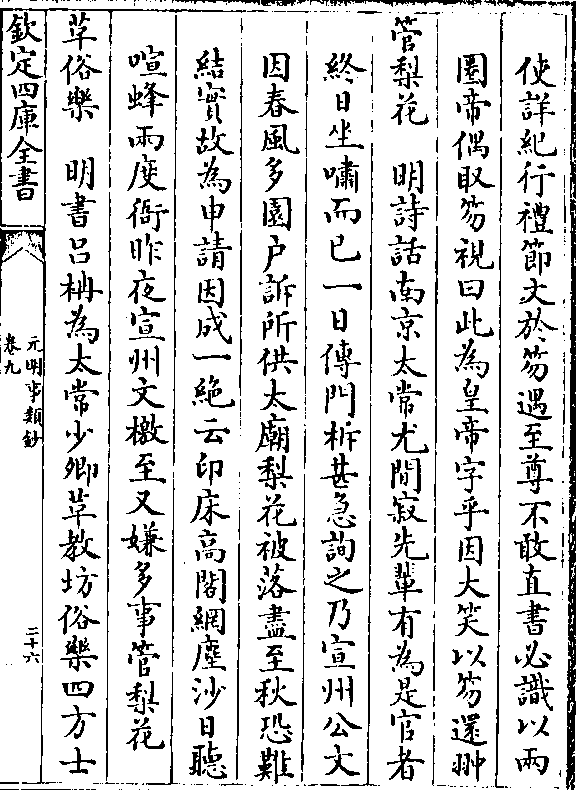 使詳紀行禮節文於笏遇至尊不敢直書必識以兩
圏帝偶取笏視曰此為皇帝字乎因大笑以笏還翀
管梨花　明詩話南京太常尤閒寂先輩有為是官者
終日坐嘯而已一日傳門柝甚急詢之乃宣州公文
因春風多園户訴所供太廟梨花被落盡至秋恐難
結實故為申請因成一絶云印床高閣網塵沙日聽
喧蜂兩度衙昨夜宣州文檄至又嫌多事管梨花
革俗樂　明書吕柟為太常少卿革教坊俗樂四方士
欽定四庫全書
元明事類鈔
卷九
二十六